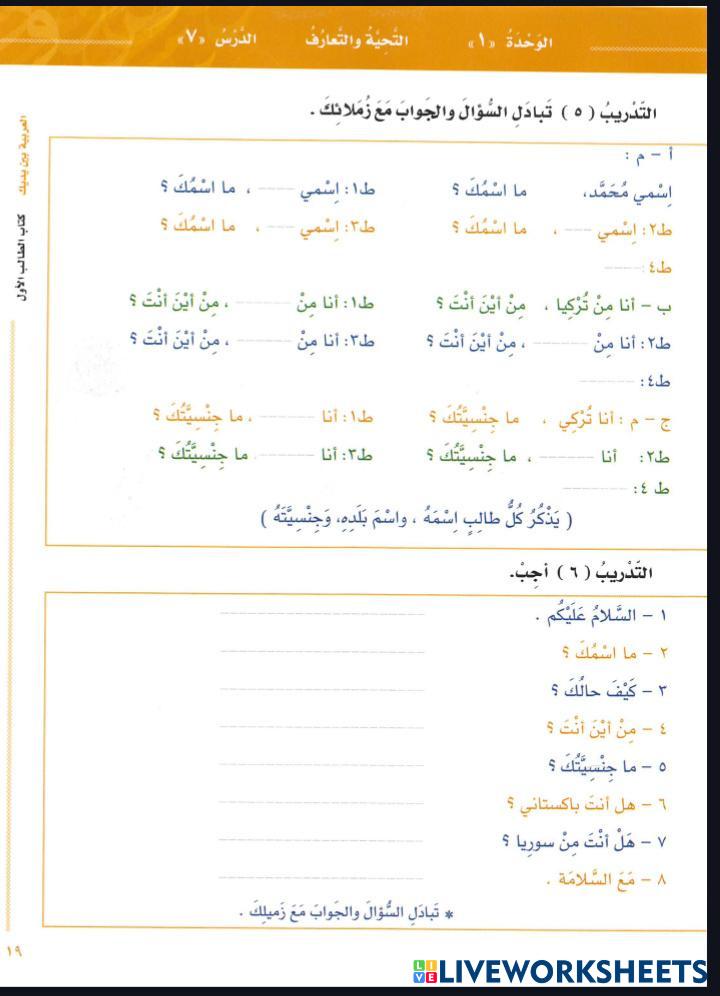 الوَحْدَةُ «١» التَّحِيَّةُ والتَّعارُفُ الدَّرْسُ «٧»
التَّدْريبُ ( ٥ ) تَبادَلِ السُّؤالَ والجَوابَ مَعَ زُمَلائِكَ .
أ – م :
اِسْمي مُحَمَّد، ما اسْمُكَ ؟ ط١: اِسْمي ........ ، ما اسْمُكَ ؟
ط٢: اِسْمي ........ ، ما اسْمُكَ ؟ ط٣: اِسْمي ........ ، ما اسْمُكَ ؟
ط٤: ........
ب – أنا مِنْ تُرْكِيا ، مِنْ أيْنَ أنْتَ ؟ ط١: أنا مِنْ ........ ، مِنْ أيْنَ أنْتَ ؟
ط٢: أنا مِنْ ........ ، مِنْ أيْنَ أنْتَ ؟ ط٣: أنا مِنْ ........ ، مِنْ أيْنَ أنْتَ ؟
ط٤: ........
ج – م : أنا تُرْكِي ، ما جِنْسِيَّتُكَ ؟ ط١: أنا ........ ، ما جِنْسِيَّتُكَ ؟
ط٢: أنا ........ ، ما جِنْسِيَّتُكَ ؟ ط٣: أنا ........ ما جِنْسِيَّتُكَ ؟
ط ٤: ........
( يَذْكُرُ كُلُّ طالِبٍ اِسْمَهُ ، واسْمَ بَلَدِهِ، وَجِنْسِيَّتَهُ )
التَّدْريبُ ( ٦ ) أجِبْ.
١ – السَّلامُ عَلَيْكُم .
٢ – ما اسْمُكَ ؟
٣ – كَيْفَ حالُكَ ؟
٤ – مِنْ أيْنَ أنْتَ ؟
٥ – ما جِنْسِيَّتُكَ ؟
٦ – هل أنتَ باكستاني ؟
٧ – هَلْ أنْتَ مِنْ سوريا ؟
٨ – مَعَ السَّلامَة .
* تَبادَلِ السُّؤالَ والجَوابَ مَعَ زَميلِكَ .
العربية بين يديك كتاب الطالب الأول
١٩
LIVE LIVEWORKSHEETS